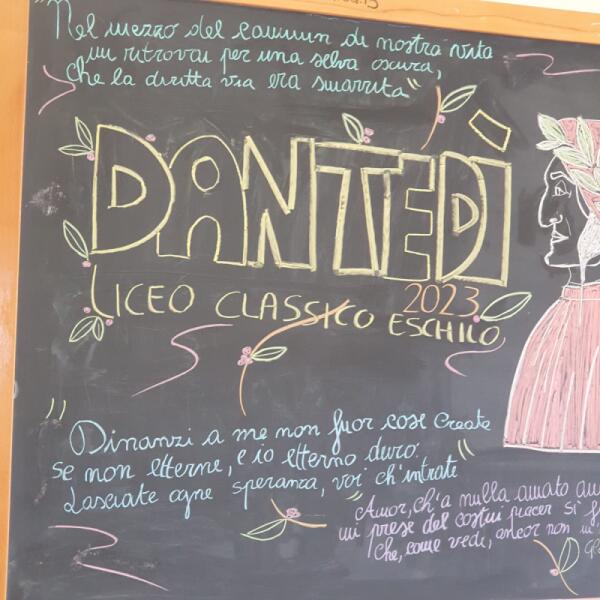 "Nel mezzo del cammin di nostra vita
mi ritrovai per una selva oscura,
che la diritta via era smarrita"
DANTEDÌ
2023
LICEO CLASSICO ESCHILO
"Dinanzi a me non fuor cose create
se non etterne, e io etterno duro.
Lasciate ogne speranza, voi ch'intrate"
"Amor, ch'a nullo amato
mi prese del costui piacer sì
che, come vedi, ancor non